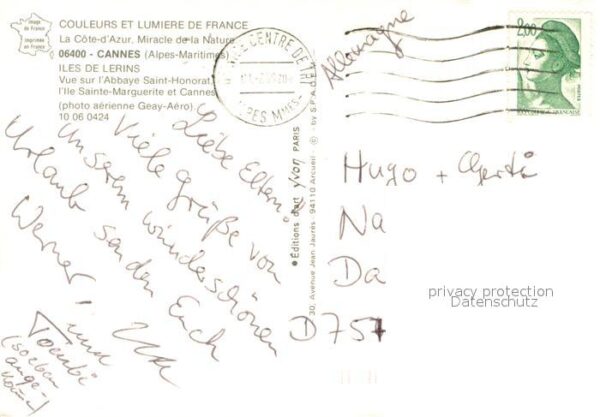 image
de France
imprimée
en France
COULEURS ET LUMIERE DE FRANCE
La Côte-d'Azur, Miracle de la Nature
06400 - CANNES (Alpes-Maritimes)
ILES DE LERINS
Vue sur l'Abbaye Saint-Honorat,
l'Ile Sainte-Marguerite et Cannes
(photo aérienne Geay-Aéro).
10 06 0424
NICE CENTRE DE TRI
ALPES MMES
Allemagne
2,00
POSTES
REPUBLIQUE FRANCAISE
Liebe Eltern!
Viele Grüße von
unserem wunderschönen
Urlaub senden Euch
Werner,
und
(soeben
ange
• Éditions d'art yvon PARIS
30, Avenue Jean Jaurès, 94110 Arcueil - © - by S.P.A.D.E.M.
Hugo +
Na
Da
D 757
privacy protection
Datenschutz